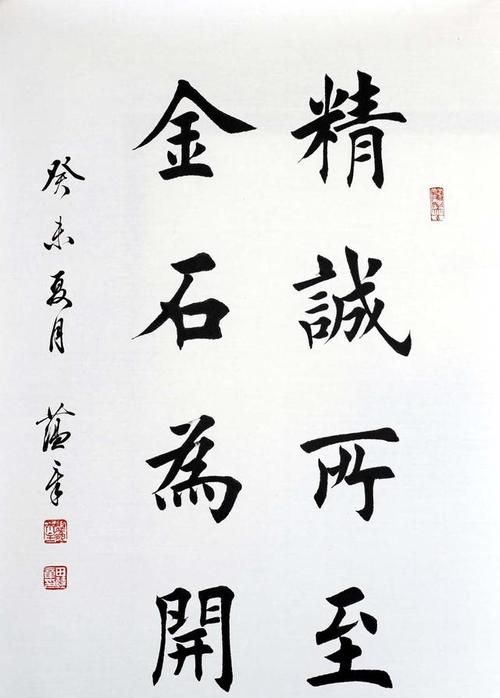 精誠所至
金石為開
癸未夏月 薀章